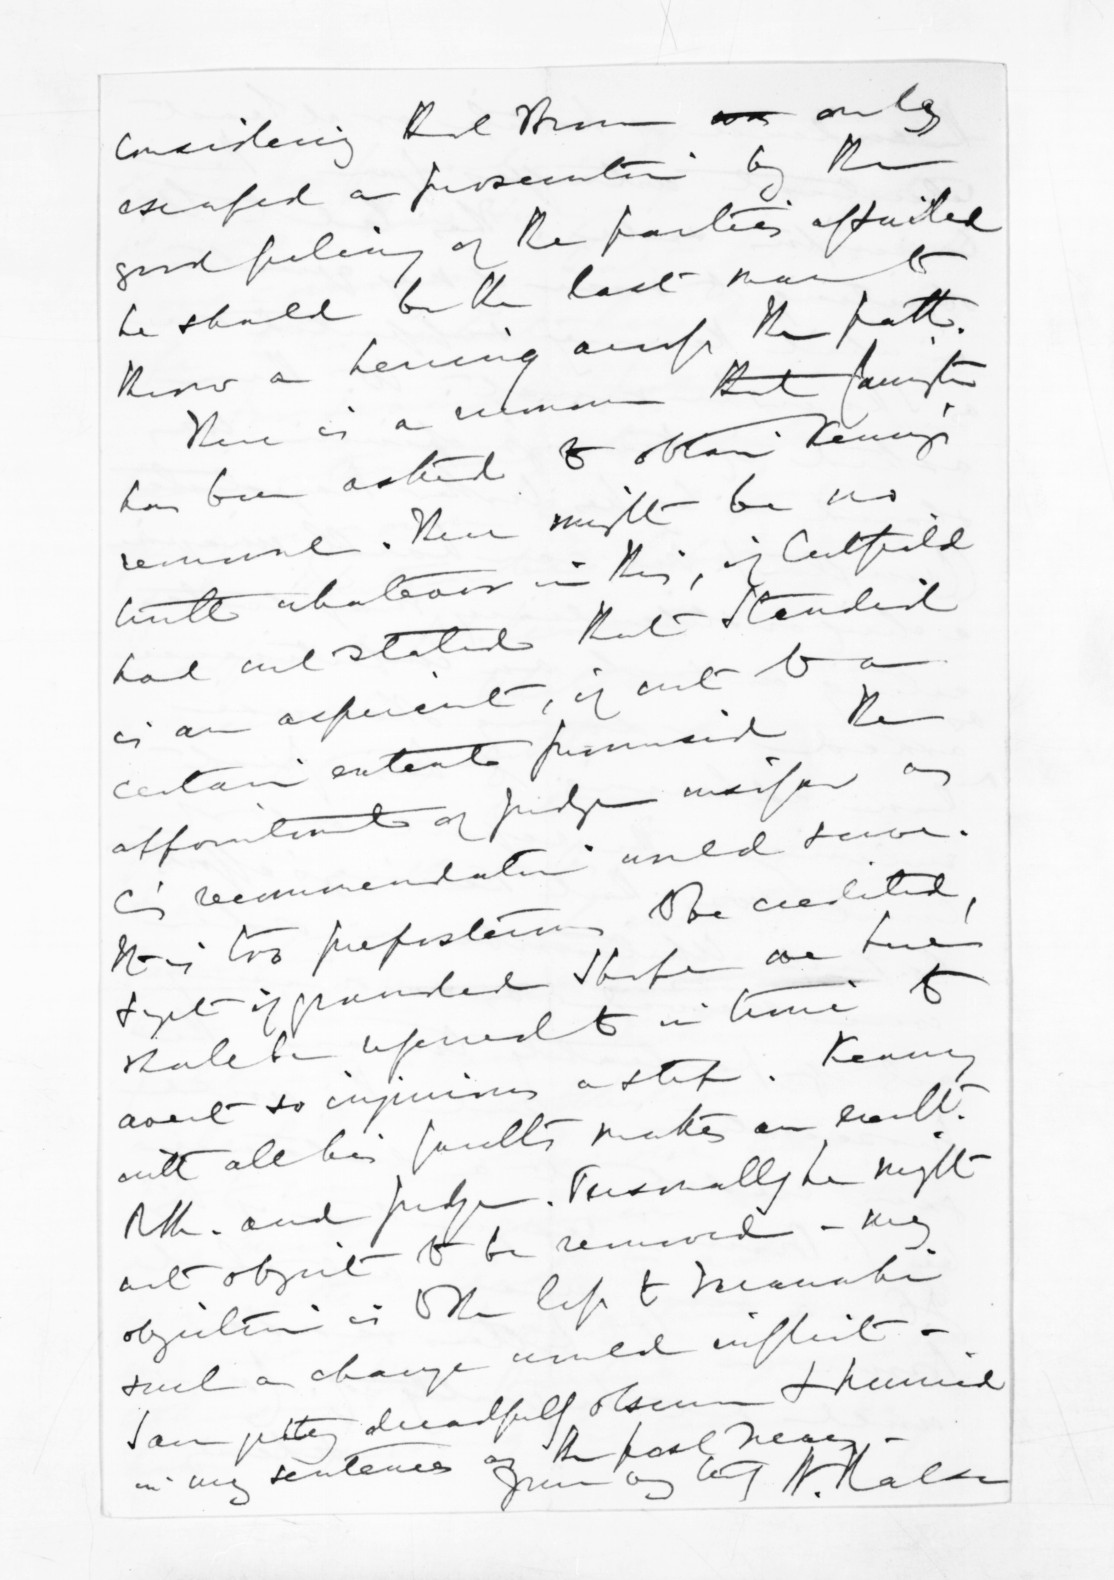 Considering that Brown was only
escaped a prosecution by the
good feeling of the parties
he should be the last man to
throw a herring across the path.
There is a rumour that
has been asked to obtain Kenny's
removal. There might be no
truth whatever in this, if Cutfield
had not stated that
is an aspirant, if not to a
certain extent promised the
appointment of judge as
C's recommendation would serve.
It is too preposterous to be credited,
& yet if grounded I hope we here
shall be referred to in time to
avert so injurious a step. Kenny
with all his faults makes an excellt.
R.M. and judge. Personally he might
not object to be removed - my
objection is to the loss to Taranaki
such a change would inflict -
I am dreadfully obscure & hurried
in my sentences as the post nears -
yours W. Halse